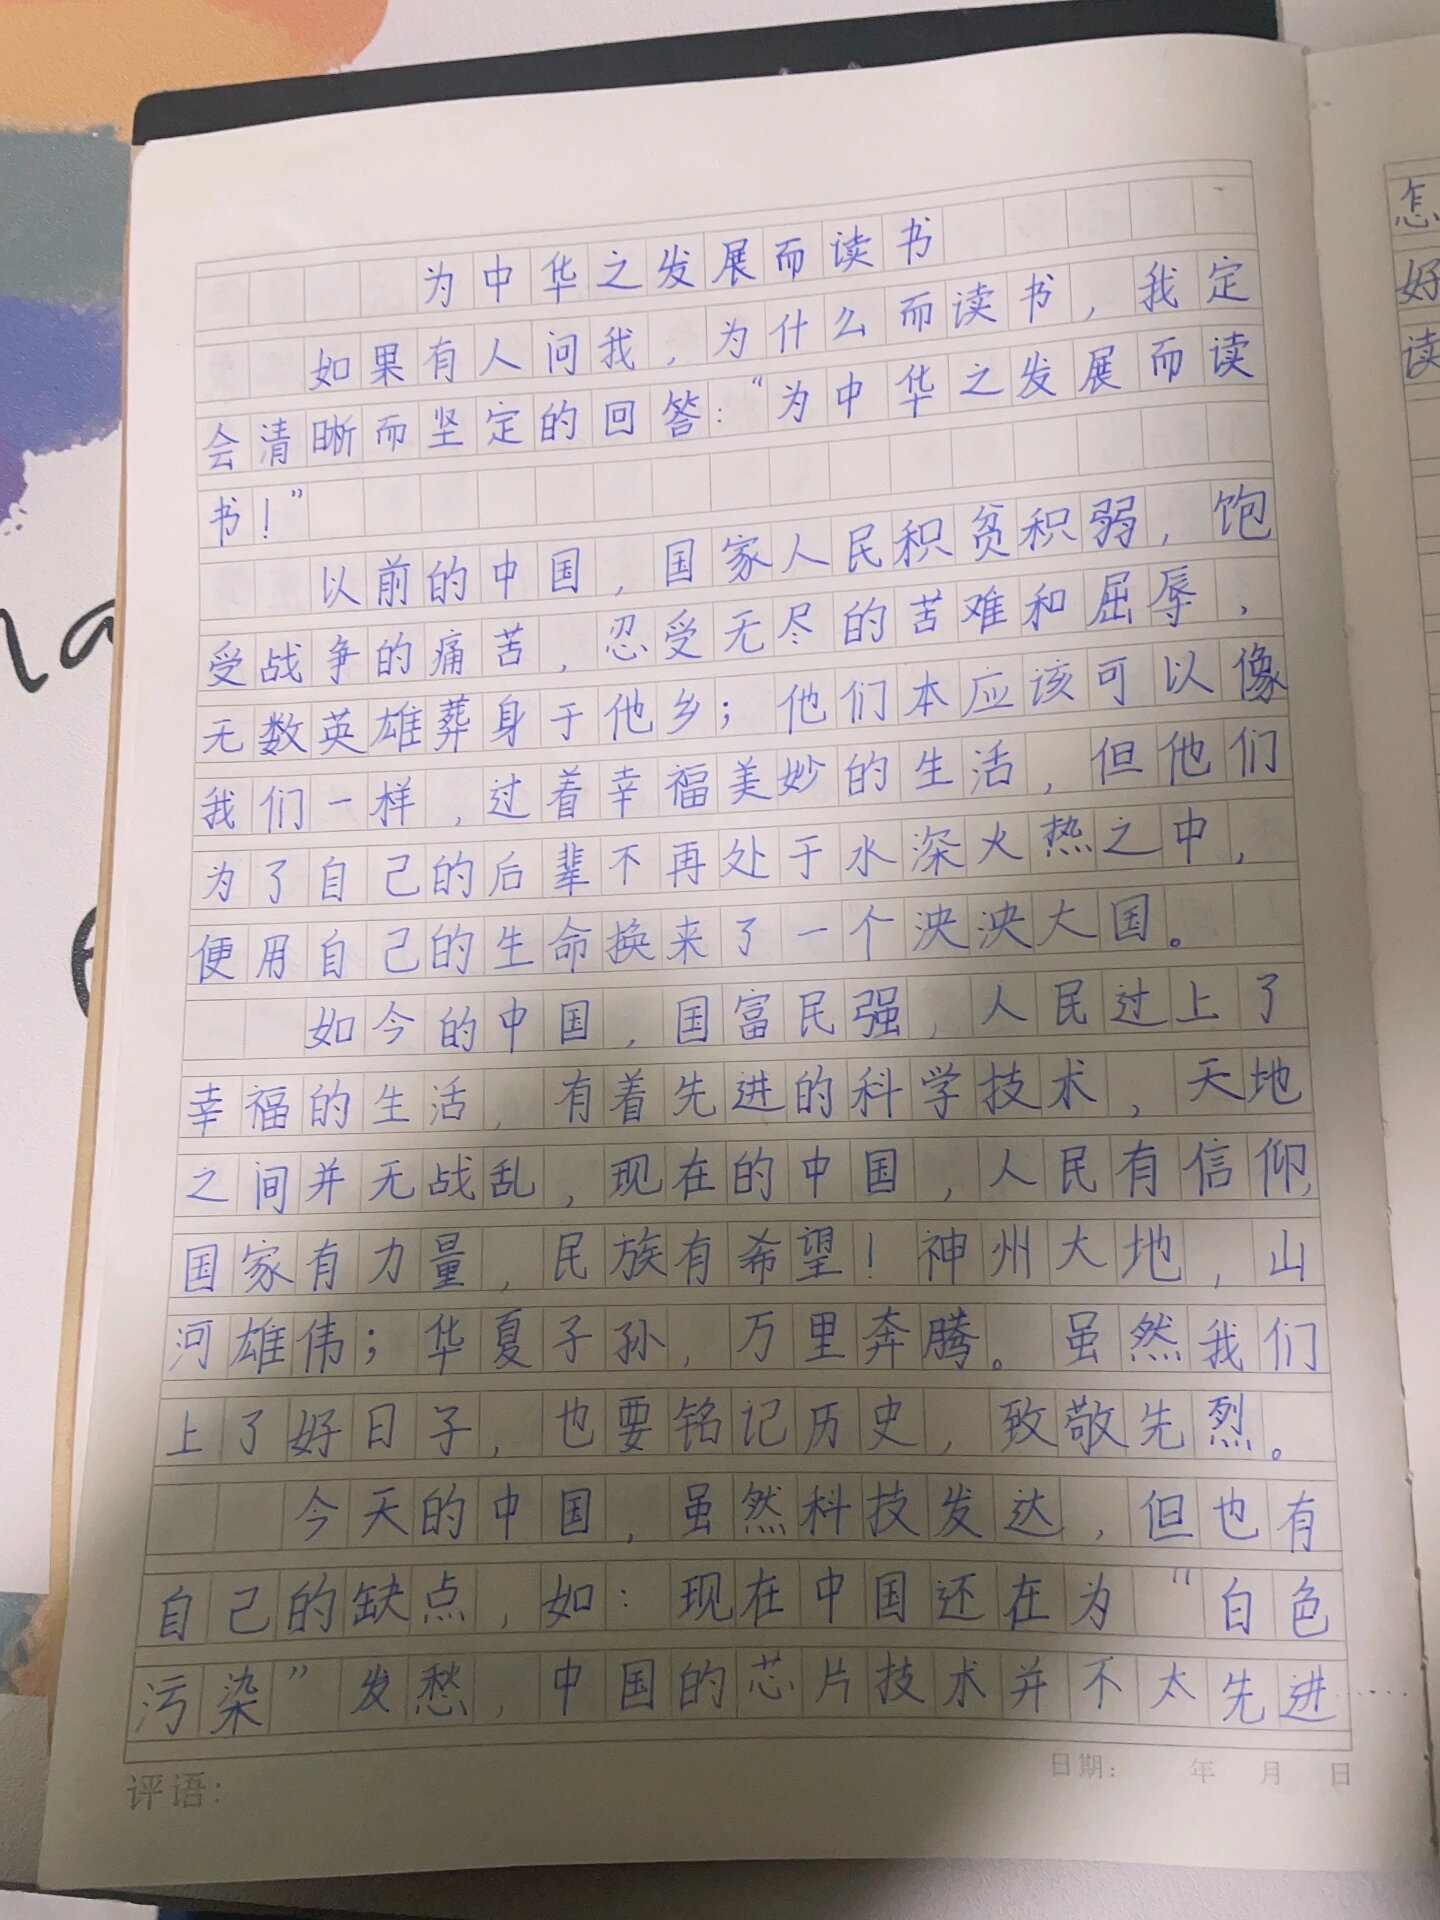 为中华之发展而读书
如果有人问我，为什么而读书，我定
会清晰而坚定的回答：“为中华之发展而读
书！”
以前的中国，国家人民积贫积弱，饱
受战争的痛苦，忍受无尽的苦难和屈辱，
无数英雄葬身于他乡；他们本应该可以像
我们一样，过着幸福美妙的生活，但他们
为了自己的后辈不再处于水深火热之中，
便用自己的生命换来了一个泱泱大国。
如今的中国，国富民强，人民过上了
幸福的生活，有着先进的科学技术，天地
之间并无战乱，现在的中国，人民有信仰，
国家有力量，民族有希望！神州大地，山
河雄伟；华夏子孙，万里奔腾。虽然我们
上了好日子，也要铭记历史，致敬先烈。
今天的中国，虽然科技发达，但也有
自己的缺点，如：现在中国还在为“白色
污染”发愁，中国的芯片技术并不太先进……
评语：
日期： 年 月 日
怎
好
读